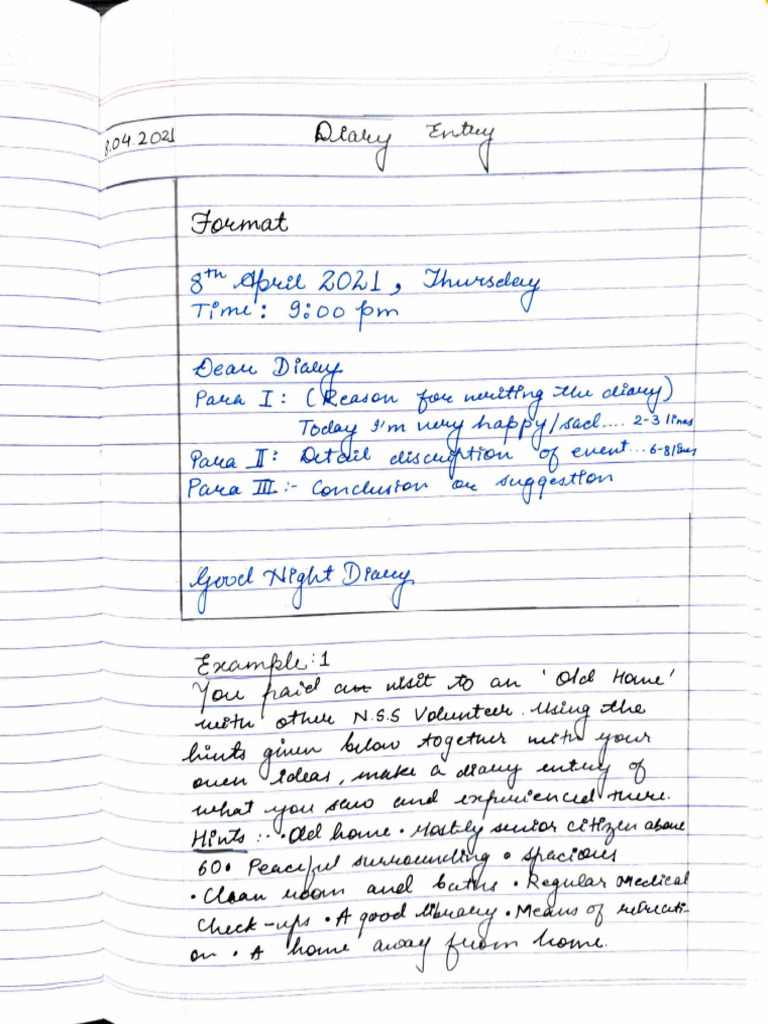 8.04.2021 Diary Entry
Format
8th April 2021, Thursday
Time: 9:00 pm
Dear Diary
Para I: (Reason for writing the diary)
Today I'm very happy/sad.... 2-3 lines
Para II: Detail discription of event... 6-8 lines
Para III:- Conclusion or suggestion
Good Night Diary
Example:1
You paid a visit to an 'Old Home'
with other N.S.S Volunteer. Using the
hints given below together with your
own ideas, make a diary entry of
what you saw and experienced there.
Hints :- • Old home • Mostly senior citizen above
60 • Peaceful surrounding • spacious
• Clean room and baths • Regular medical
check-ups • A good library • Means of
on • A home away from home.